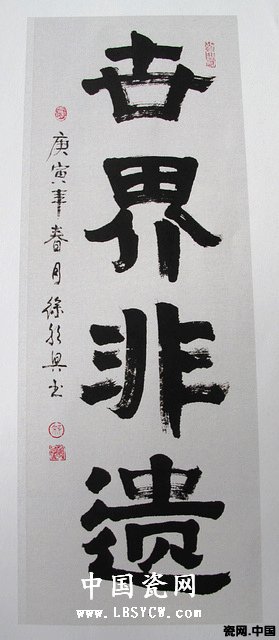 世界非遗
庚寅年春月徐朝兴书
中国瓷网
www.LBSYCW.COM
瓷网.中国